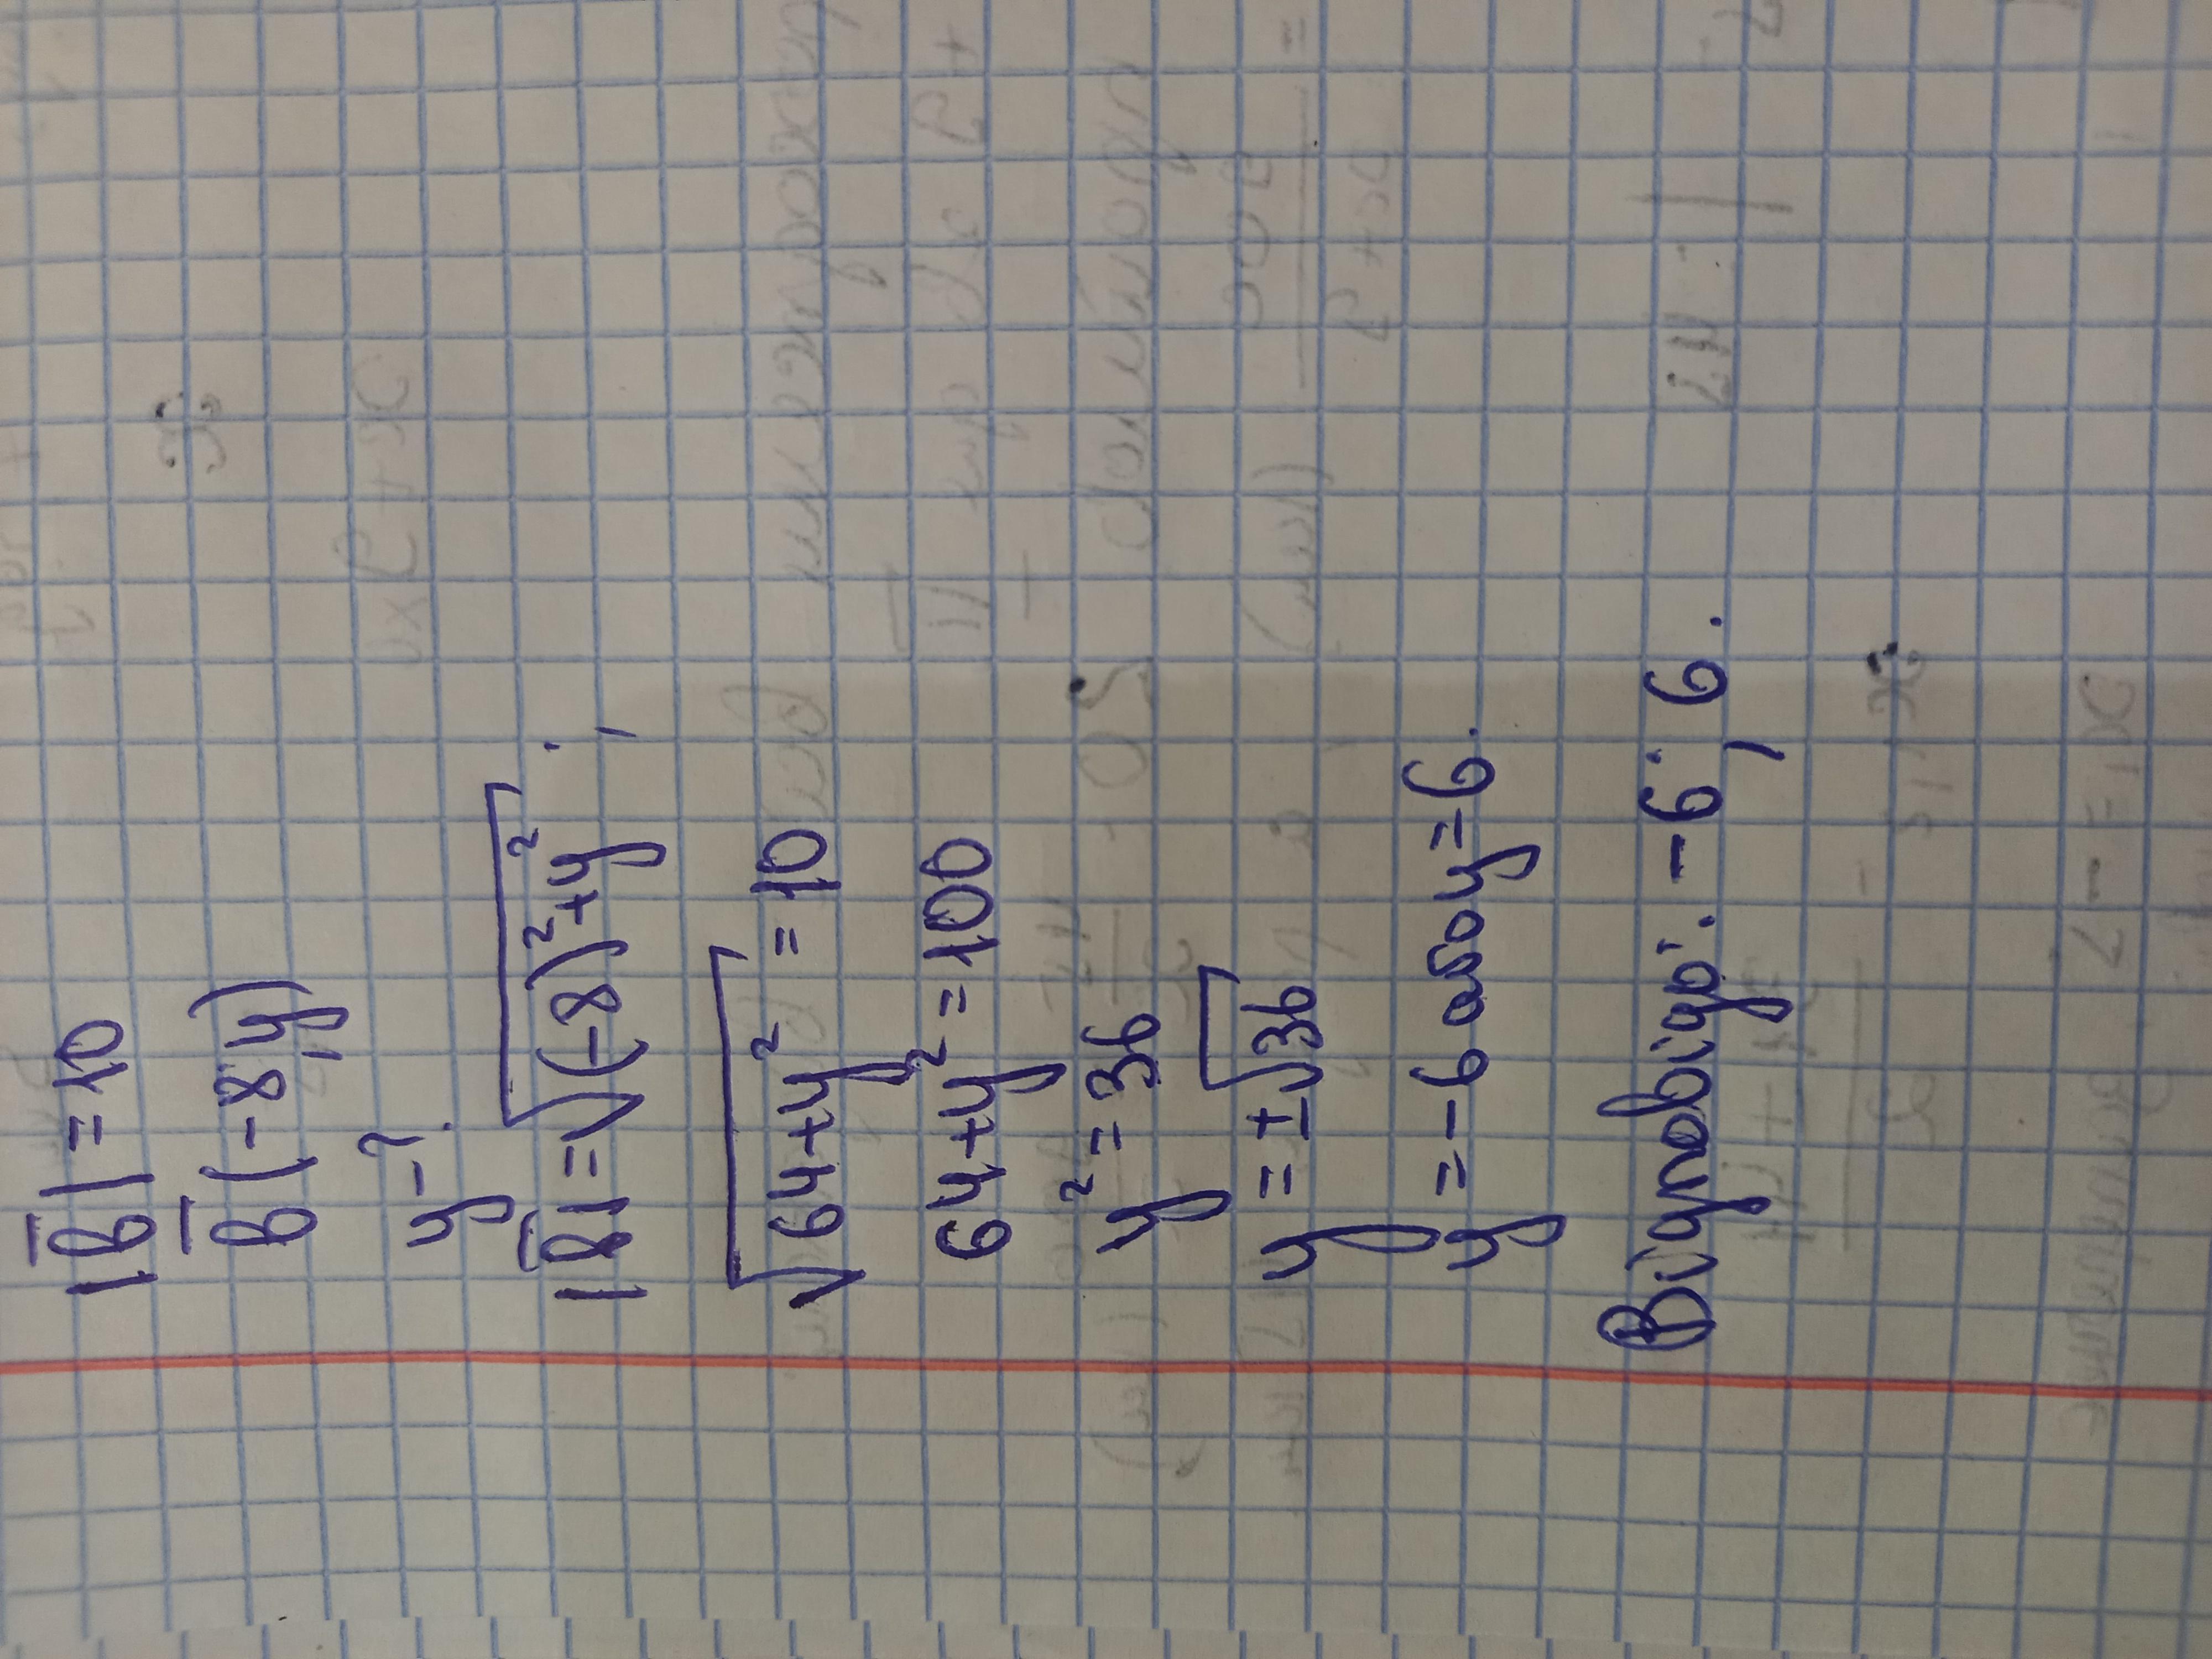 |b̅| = 10
b̅ (-8, y)
y - ?
|b̅| = √((-8)² + y²) ;
√(64 + y²) = 10
64 + y² = 100
y² = 36
y = ± √36
y = -6 або y = 6.
Відповідь: -6; 6.